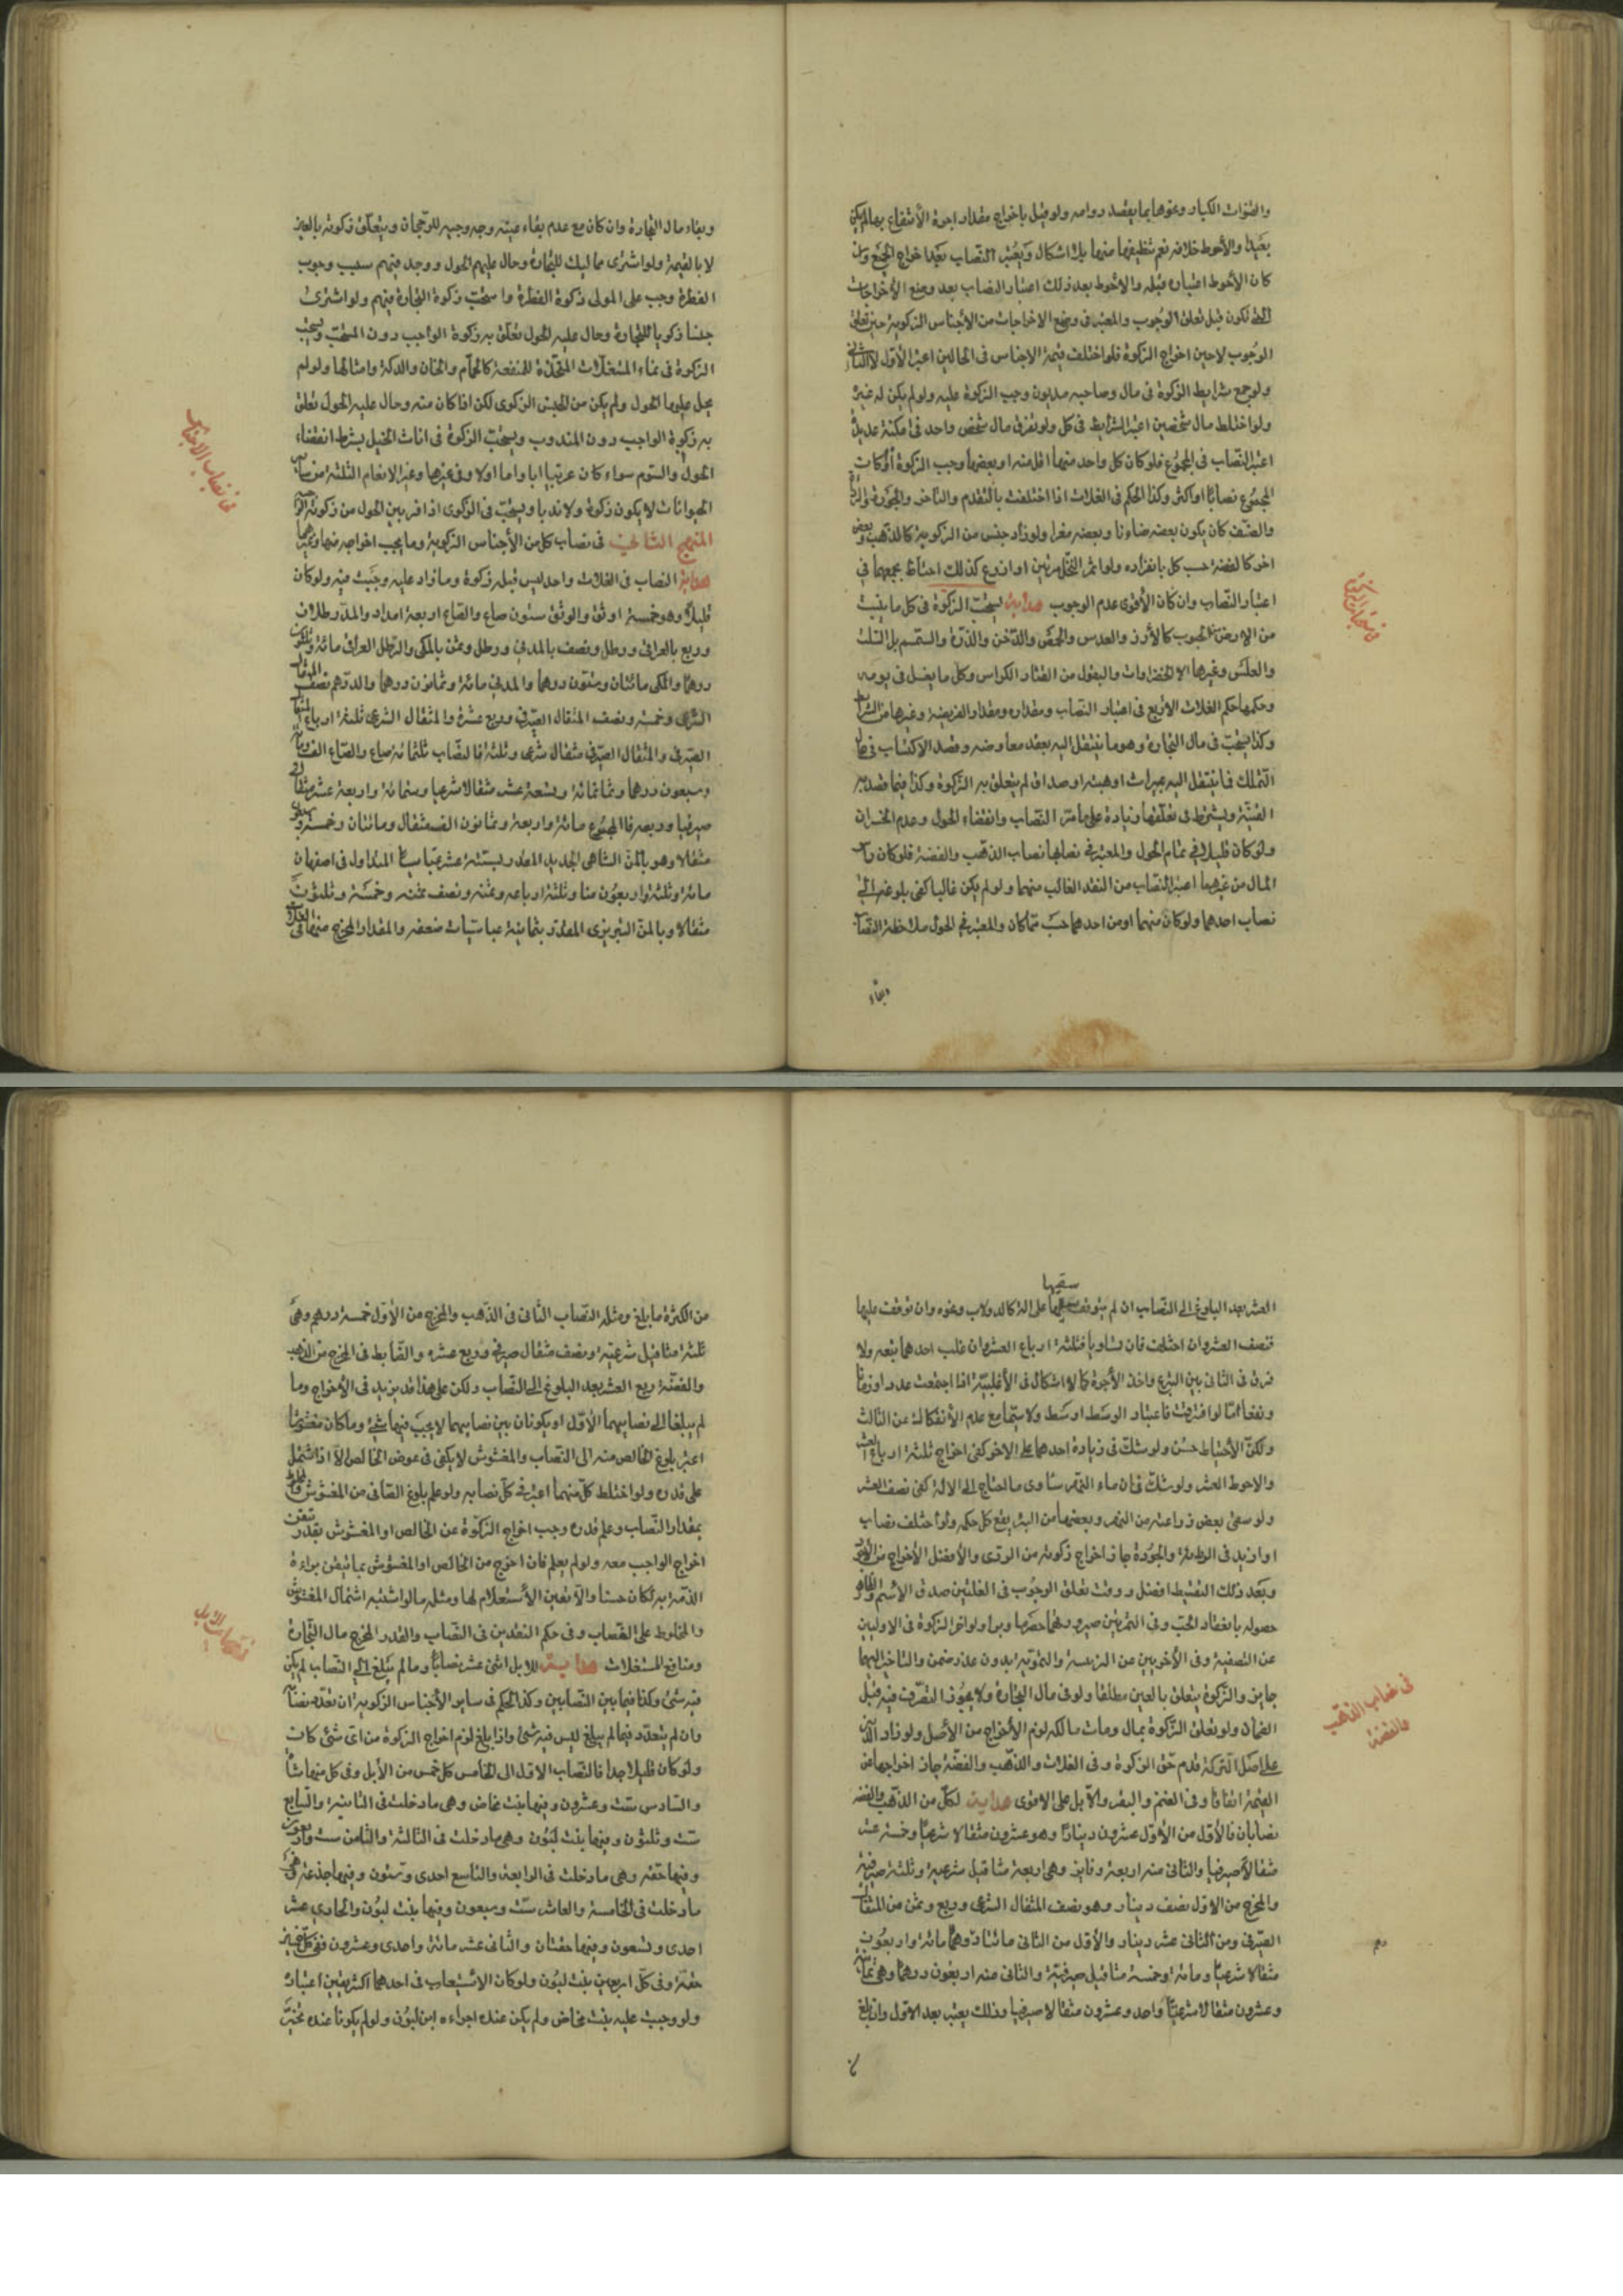 والقنوات الكبار ونحوها بما يقصد دوامه ولو قيل باخراج مقدار اجرة الأنتفاع بها لم يكن
بعيدا والأحوط خلافه نعم تنظيفها منها بلا اشكال ويعتبر النصاب بعد اخراج الجميع وان
كان الأحوط اعتباره قبله والاحوط بعد ذلك اعتبار النصاب بعد وضع الأخراجات
التى تكون قبل تعلق الوجوب والمعتبر فى وضع الاخراجات من الأجناس الزكوية حين تعلق
الوجوب لا حين اخراج الزكوة فلو اختلف قيمة الاجناس فى الحالين اعتبر الأول لا الثانى
ولو جمع شرايط الزكوة فى مال وصاحبه مديون وجب الزكوة عليه ولو لم يكن له غيره
ولو اختلط مال شخصين اعتبر الشرايط فى كل ولو تفرق مال شخص واحد فى امكنة عديدة
اعتبر النصاب فى المجموع فلو كان كل واحد منها اقل منه او بعضها وجب الزكوة اذا كان
المجموع نصابا او اكثر وكذا الحكم فى الغلات اذا اختلفت بالتقدم والتاخر والجودة
والصنف كان يكون بعضه ضاءنا وبعضه معزا ولو زاد جنس من الزكوية كالذهب وبعض
اخر كالفضة حسب كل بانفراده ولو اثمر النخل مرتين او ازرع كذلك احتاط بجمعهما في
اعتبار النصاب وان كان الأقوى عدم الوجوب هداية يستحب الزكوة فى كل ما ينبت
من الارض من الحبوب كالأرز والعدس والحمص والدخن والذرة والسمسم بل السلت
والعلس وغيرها الا الخضراوات والبقول من القثاء والكراس وكل ما يفسد فى يومه
وحكمها حكم الغلات الاربع فى اعتبار النصاب ومقداره ومقدار الفريضة وغيرها من الشرايط
وكذا يستحب فى مال التجارة وهو ما ينتقل اليه بعقد معاوضة وقصد الاكتساب فى حال
التملك فما ينتقل اليه بميراث او هبة او صداق لم يتعلق به الزكوة وكذا فيما قصد به
القنية ويشترط فى تعلقها زيادة على ما مر النصاب وانقضاء الحول وعدم الخسران
ولو كان قليلا فى تمام الحول والمعتبر فى نصابها نصاب الذهب والفضة فلو كان راس
المال من غيرهما اعتبر النصاب من النقد الغالب منهما ولو لم يكن غالبا كفى بلوغه الى
نصاب احدهما ولو كان منهما او من احدهما حسب ما كان والمعتبر فى الحول ملاحظة النصاب
وبقاء
فى ما يستحب فيه الزكوة
وبقاء مال التجارة وان كان مع عدم بقاء عينه وجه وجيه للرجحان ويتعلق زكوته بالعين
لا بالقيمة ولو اشترى مماليك للتجارة وحال عليهم الحول ووجد فيهم سبب وجوب
الفطرة وجب على المولى زكوة الفطرة واستحب زكوة التجارة فيهم ولو اشترى
جنسا زكويا للتجارة وحال عليه الحول تعلق به زكوة الواجب دون المستحب ويستحب
الزكوة فى نماء المستغلات المتخذة للمنفعة كالحمام والخان والدكة وامثالها ولو لم
يحل عليها الحول ولم يكن من الجنس الزكوى لكن اذا كان منه وحال عليه الحول تعلق
به زكوة الواجب دون المندوب ويستحب الزكوة فى اناث الخيل بشرط انقضاء
الحول والسوم سواء كان عربيا ابا واما اولا وفى غيرها وغير الانعام الثلثة من ساير
الحيوانات لا يكون زكوة ولا ندبا ويستحب فى الزكوى اذا فر بين الحول من زكوته
المنهج الثالث فى نصاب كل من الأجناس الزكوية وما يجب اخراجه منها وغيرها
هداية النصاب فى الغلات واحد ليس قبله زكوة وما زاد عليه وجبت فيه ولو كان
قليلا وهو خمسة اوسق والوسق ستون صاع والصاع اربعة امداد والمد رطلان
وربع بالعراقى ورطل ونصف بالمدنى ورطل وثمن بالمكى والرطل العراقى مائة وثلثون
درهما والمكى مائتان وستون درهما والمدنى مائة وتسعون درهما والدرهم نصف المثقال
الشرعى وخمسه ونصف المثقال الصيرفى وربع عشره والمثقال الشرعى ثلثة ارباع المثقال
الصيرفى والمثقال الصيرفى مثقال شرعى وثلثه فالنصاب ثلثمائة صاع والصاع الف ومائة
وسبعون درهما وثمانمائة وتسعة عشر مثقالا شرعيا وستمائة واربعة عشر مثقالا
صيرفيا وربعه فالمجموع مائة واربعة وثمانون الف مثقال ومائتان وخمسة وسبعون
مثقالا وهو بالمن الشاهى الجديد المقدر بستة عشر عباسيا المتداول فى اصفهان
مائة وثلثة واربعون منا وثلثة ارباعه وثمنه ونصف ثمنه وخمسة وثلثون
مثقالا وبالمن التبريزى المقدر بثمانية عباسيات ضعفه والمقدار المخرج منها فى الغلات
فى نصاب الاجناس
سقيها
العشر بعد البلوغ الى النصاب ان لم يتوقف على الة كالدولاب ونحوه وان توقفت عليها
فنصف العشر وان اختلفت فان تساويا فثلثة ارباع العشر وان غلب احدهما يتبعه ولا
فرق فى الثانى بين التبرع واخذ الأجرة كما لا اشكال فى الأغلبية اذا اجتمعت عددا وزمانا
ونفعا اما لو افترقت فاعتبار الوسط اوسط ولا سيما مع عدم الأنفكاك عن الثالث
ولكن الأحتياط حسن ولو شك فى زيادة احدهما على الاخر كفى اخراج ثلثة ارباع العشر
والاحوط العشر ولو شك فى ان ماء النهر ساوى ما احتاج الى الالة كفى نصف العشر
ولو سقى بعض زراعته من النهر وبعضها من البئر يقع كل حكمه ولو اختلف نصاب
او ازيد فى الرطوبة والجودة جاز اخراج زكوته من الردى والأفضل الأخراج من الأجود
وبعد ذلك التقسيط افضل ووقت تعلق الوجوب فى الغلتين صدق الاسم والظاهر
حصوله بانعقاد الحب وفى الثمرتين صيرورتهما حصرما وبسرا ولو اخر الزكوة فى الاوليين
عن التصفية وفى الأخريين عن الزبيبية والتمرية بدون عذر ضمن والتاخير اليهما
جايز والزكوة يتعلق بالعين مطلقا ولو فى مال التجارة ولا يجوز التصرف فيه قبل
الضمان ولو تعلق الزكوة بمال ومات مالكه لزم الأخراج من الأصل ولو زاد الدين
على اصل التركة قدم حق الزكوة وفى الغلات والذهب والفضة جاز اخراجها عن
القيمة اتفاقا وفى الغنم والبقر والأبل على الاقوى هداية لكل من الذهب والفضة
نصابان فالأول من الأول عشرون دينارا وهو عشرون مثقالا شرعيا وخمسة عشر
مثقالا صيرفيا والثانى منه اربعة دنانير وهى اربعة مثاقيل شرعية وثلثة صيرفية
والمخرج من الاول نصف دينار وهو نصف المثقال الشرعى وربع وثمن من المثقال
الصيرفى ومن الثانى عشر دينار والأول من الثانى مائتا درهما مائة واربعون
مثقالا شرعيا ومائة وخمسة مثاقيل صيرفية والثانى منه اربعون درهما وهى ثمانية
وعشرون مثقالا شرعيا واحد وعشرون مثقالا صيرفيا وذلك يعتبر بعد الاول وان بلغ
فى نصاب الذهب
والفضة
من الكثرة ما بلغ ومثله النصاب الثانى فى الذهب والمخرج من الأول خمسة درهم وهى
ثلثة مثاقيل شرعية ونصف مثقال صيرفى وربع عشره والضابط فى المخرج من الذهب
والفضة ربع العشر بعد البلوغ الى النصاب ولكن على هذا قد يزيد فى الأخراج وما
لم يبلغا الى نصابيهما الأول او يكونان بين نصابيهما لا يجب فيهما شئ وما كان مغشوشا
اعتبر بلوغ الخالص منه الى النصاب والمغشوش لا يكفى فى عوض الخالص الا اذا اشتمل
على قدره ولو اختلط كل منهما اعتبر فى كل نصابه ولو علم بلوغ الصافى من المغشوش والمخلوط
بمقدار النصاب وعلم قدره وجب اخراج الزكوة عن الخالص او المغشوش بقدر تيقن
اخراج الواجب معه ولو لم يعلم فان اخرج من الخالص او المغشوش بما تيقن براءة
الذمة به لكان حسنا والا تعين الأستعلام لها ومثله ما لو اشتبه اشتمال المغشوش
والمخلوط على النصاب وفى حكم النقدين فى النصاب والقدر المخرج مال التجارة
ومنافع المستغلات هداية للابل اثنى عشر نصابا وما لم يبلغ الى النصاب لم يكن
فيه شئ وكذا فيما بين النصابين وكذا الحكم فى ساير الأجناس الزكوية ان تعدد نصابا
وان لم يتعدد فيما لم يبلغ ليس فيه شئ واذا بلغ لزم اخراج الزكوة من اى شئ كان
ولو كان قليلا جدا فالنصاب الاول الى الخامس كل خمس من الأبل وفى كل منها شاة
والسادس ست وعشرون وفيها بنت مخاض وهى ما دخلت فى الثانية والسابع
ست وثلثون وفيها بنت لبون وهى ما دخلت فى الثالثة والثامن ست واربعون
وفيها حقة وهى ما دخلت فى الرابعة والتاسع احدى وستون وفيها جذعة وهى
ما دخلت فى الخامسة والعاشر ست وسبعون وفيها بنت لبون والحادى عشر
احدى وتسعون وفيها حقتان والثانى عشر مائة واحدى وعشرون ففى كل خمسين
حقة وفى كل اربعين بنت لبون ولو كان الاستيعاب فى احدهما اكثر تعين اعتباره
ولو وجبت عليه بنت مخاض ولم يكن عنده اجزاءه ابن لبون ولو لم يكونا عنده تخير
فى نصاب الابل